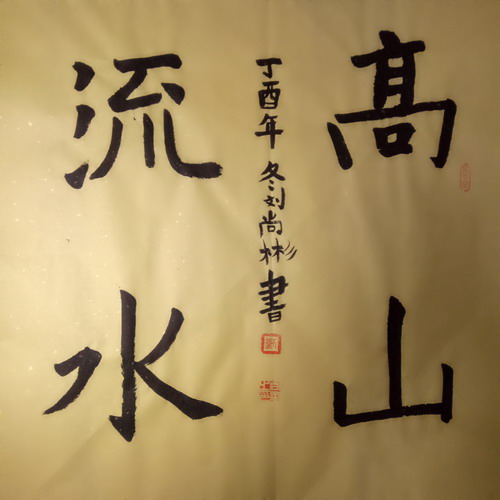 高山
流水
丁酉年冬刘尚彬書